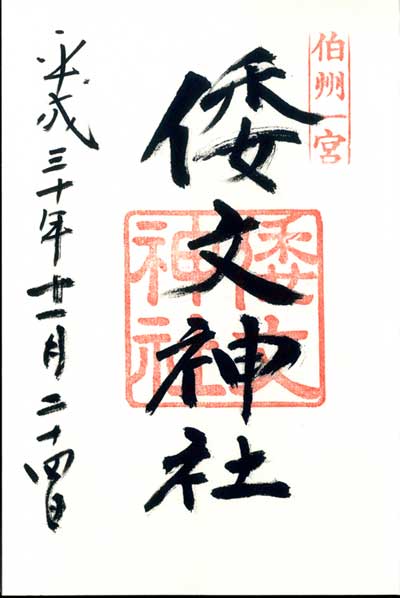 伯州一宮
倭文神社
倭文
神社
平成三十年十一月二十四日